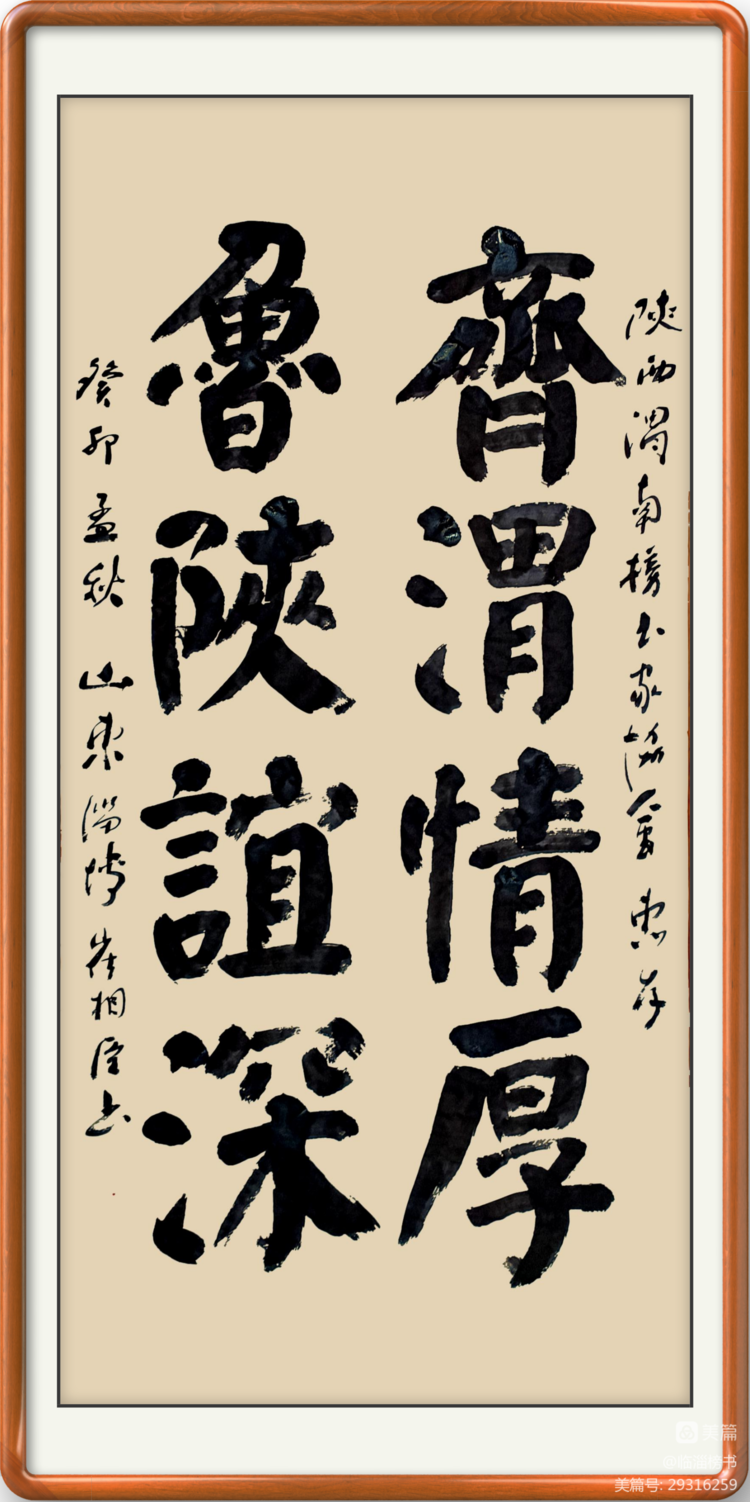 陝西渭南榜书家协會 惠存
齊渭情厚
魯陝誼深
癸卯孟秋 山东淄博 崔相臣书
美篇
美篇号: 29316259